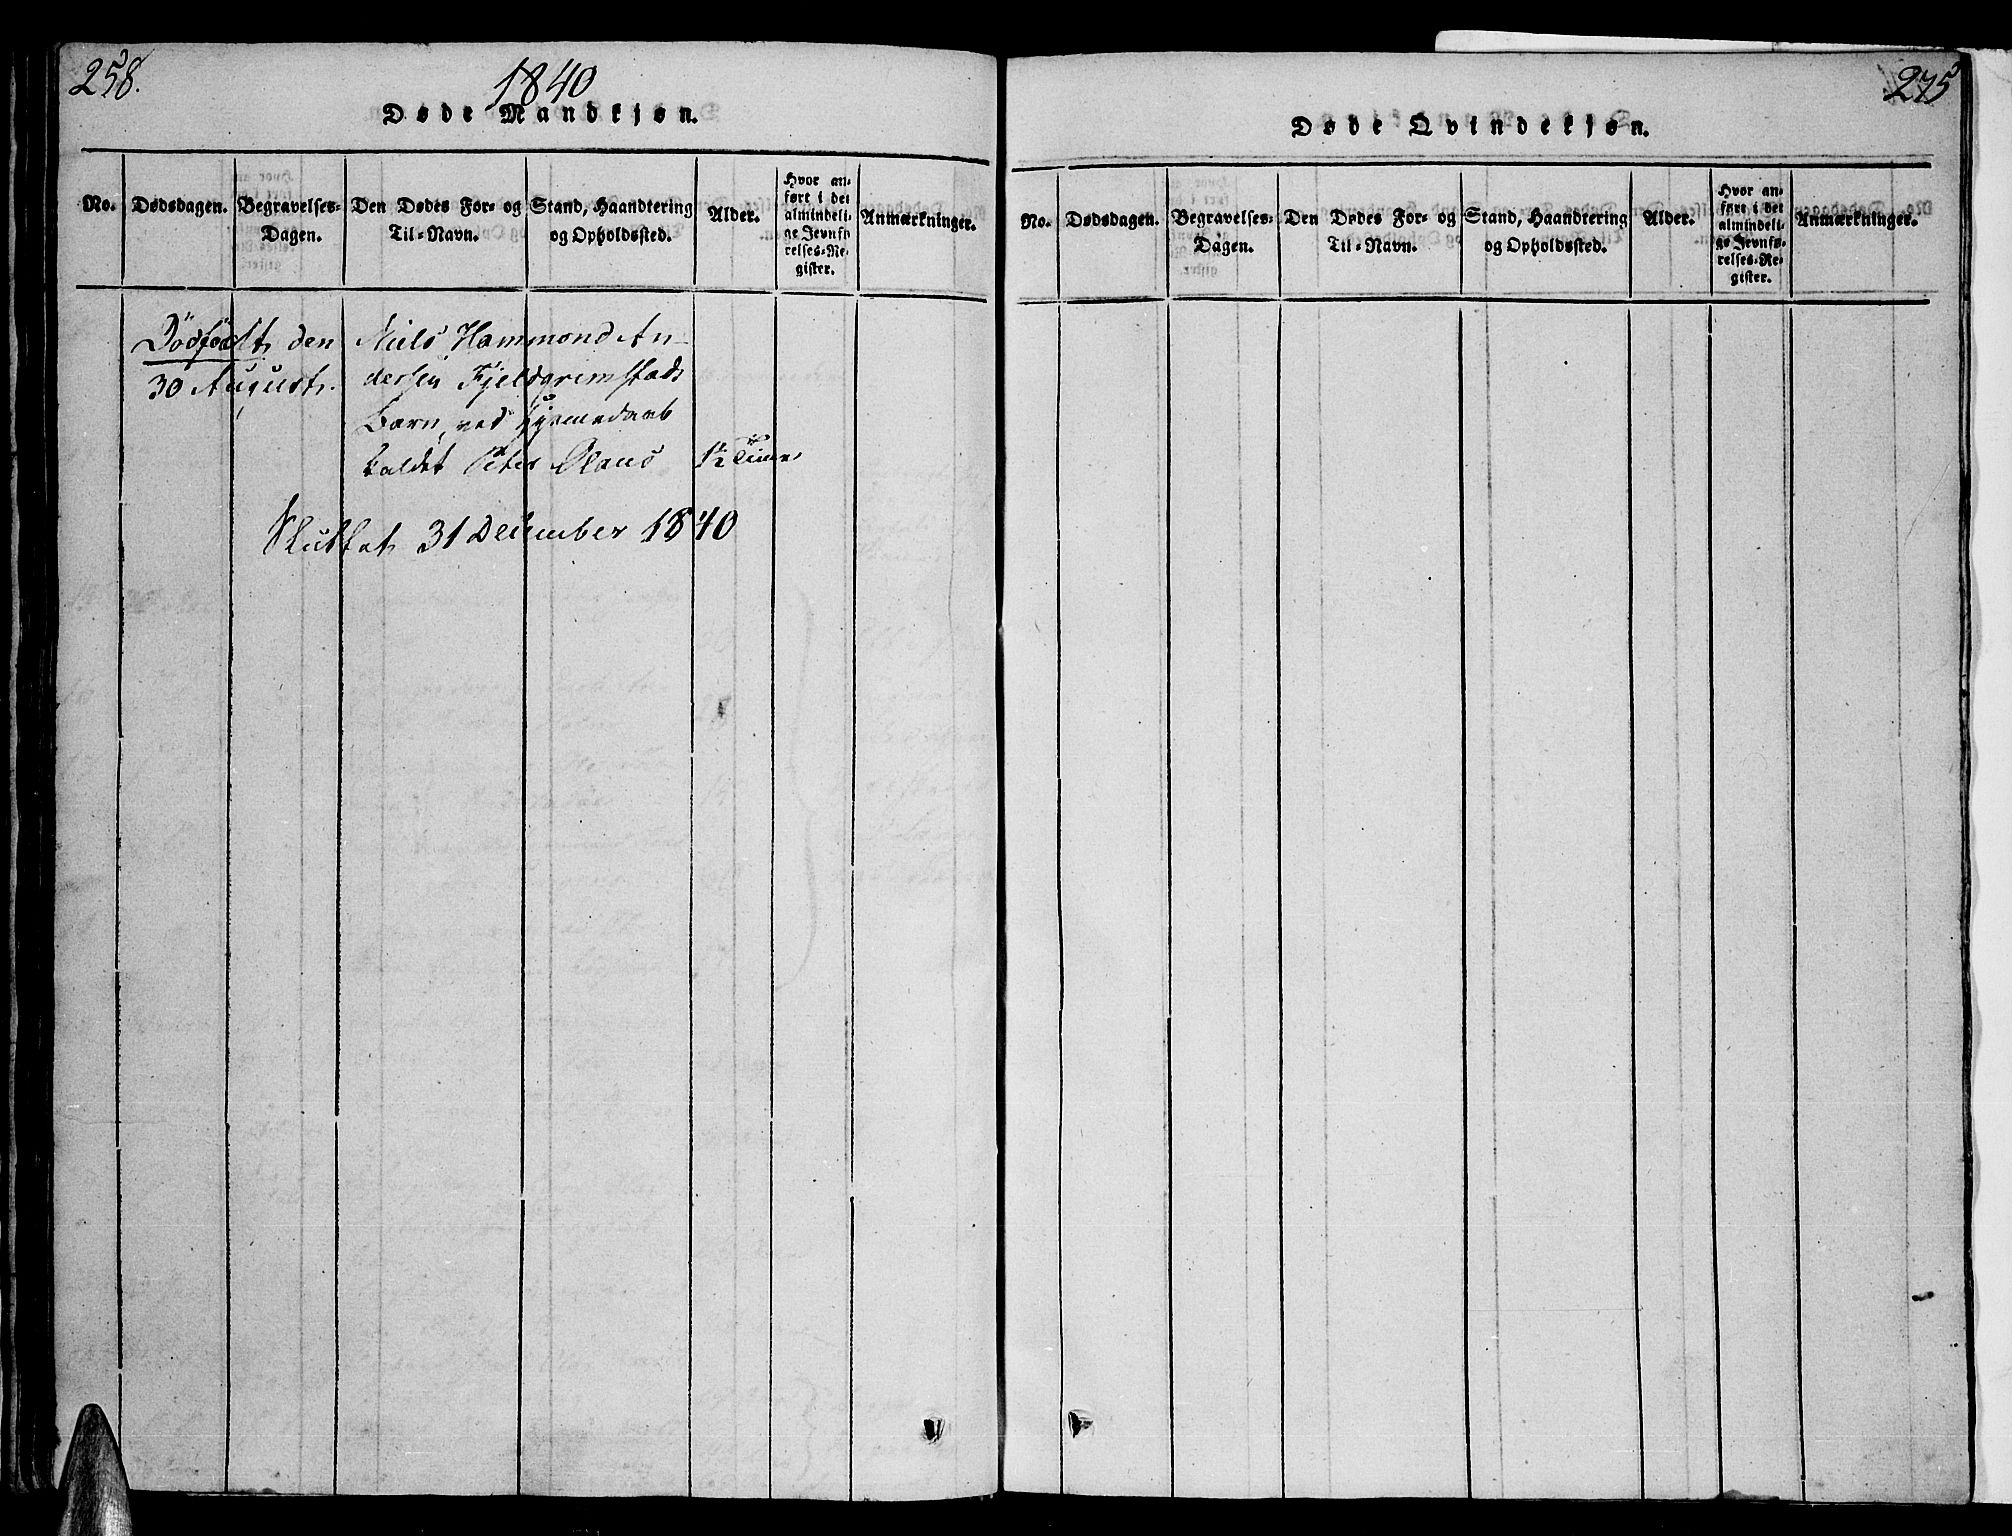 258.
1840
Døde Mandkjøn.
No.
Dødsdagen.
Begravelses-
Dagen.
Den Dødes For- og
Til-Navn.
Stand, Haandtering
og Opholdssted.
Alder.
Hvor an-
ført i det
almindeli-
ge Jevnfø-
relses-Re-
gister.
Anmærkninger.
Dödfödt den
30 August.
Niels Hammond An-
dersen Fjeldgrimstads
Barn, ved Hjemmedaab
kaldet Peter Olaus
1/2 Time
Sluttet 31 December 1840
275
Døde Qvindekjøn.
No.
Dødsdagen.
Begravelses-
Dagen.
Den Dødes For- og
Til-Navn.
Stand, Haandtering
og Opholdssted.
Alder.
Hvor an-
ført i det
almindeli-
ge Jevnfø-
relses-Re-
gister.
Anmærkninger.